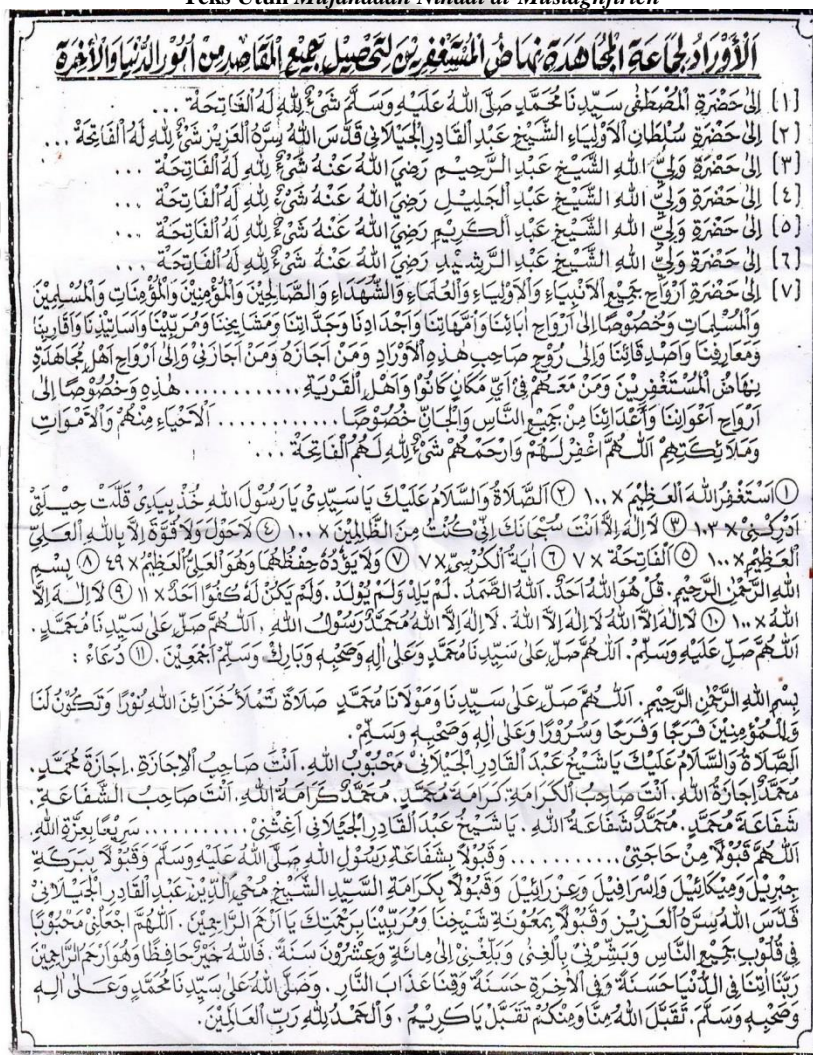 Teks Utuh Mujahadah Nihadl al-Mustaghfirien
اَلْأَوْرَادُ لِجَمَاعَةِ الْمُجَاهَدَةِ نِهَاضُ الْمُسْتَغْفِرِيْنَ لِتَحْصِيْلِ جَمِيْعِ الْمَقَاصِدِ مِنْ اُمُوْرِ الدُّنْيَا وَالْأٰخِرَةِ
[١] إِلَى حَضْرَةِ الْمُصْطَفَى سَيِّدِنَا مُحَمَّدٍ صَلَّى اللهُ عَلَيْهِ وَسَلَّمَ شَيْءٌ لِلّٰهِ لَهُ الْفَاتِحَةُ ...
[٢] إِلَى حَضْرَةِ سُلْطَانِ الْاَوْلِيَاءِ الشَّيْخِ عَبْدِ الْقَادِرِ الْجَيْلَانِي قَدَّسَ اللهُ سِرَّهُ الْعَزِيْزَ شَيْءٌ لِلّٰهِ لَهُ الْفَاتِحَةُ ...
[٣] إِلَى حَضْرَةِ وَلِيِّ اللهِ الشَّيْخِ عَبْدِ الرَّحِيْمِ رَضِيَ اللهُ عَنْهُ شَيْءٌ لِلّٰهِ لَهُ الْفَاتِحَةُ ...
[٤] إِلَى حَضْرَةِ وَلِيِّ اللهِ الشَّيْخِ عَبْدِ الْجَلِيْلِ رَضِيَ اللهُ عَنْهُ شَيْءٌ لِلّٰهِ لَهُ الْفَاتِحَةُ ...
[٥] إِلَى حَضْرَةِ وَلِيِّ اللهِ الشَّيْخِ عَبْدِ الْكَرِيْمِ رَضِيَ اللهُ عَنْهُ شَيْءٌ لِلّٰهِ لَهُ الْفَاتِحَةُ ...
[٦] إِلَى حَضْرَةِ وَلِيِّ اللهِ الشَّيْخِ عَبْدِ الرَّشِيْدِ رَضِيَ اللهُ عَنْهُ شَيْءٌ لِلّٰهِ لَهُ الْفَاتِحَةُ ...
[٧] إِلَى حَضْرَةِ اَرْوَاحِ جَمِيْعِ الْاَنْبِيَاءِ وَالْاَوْلِيَاءِ وَالْعُلَمَاءِ وَالشُّهَدَاءِ وَالصَّالِحِيْنَ وَالْمُؤْمِنِيْنَ وَالْمُؤْمِنَاتِ وَالْمُسْلِمِيْنَ
وَالْمُسْلِمَاتِ وَخُصُوْصًا اِلَى اَرْوَاحِ اٰبَائِنَا وَاُمَّهَاتِنَا وَاَجْدَادِنَا وَجَدَّاتِنَا وَمَشَايِخِنَا وَمُرَبِّيْنَا وَاَسَاتِيْذِنَا وَاَقَارِبِنَا
وَمَعَارِفِنَا وَاَصْدِقَائِنَا وَاِلَى رُوْحِ صَاحِبِ هٰذِهِ الْاَوْرَادِ وَمَنْ اَجَازَهُ وَمَنْ اَجَازَنِيْ وَاِلَى اَرْوَاحِ اَهْلِ مُجَاهَدَةِ
نِهَاضُ الْمُسْتَغْفِرِيْنَ وَمَنْ مَعَهُمْ فِيْ اَيِّ مَكَانٍ كَانُوْا وَاَهْلِ الْقَرْيَةِ ............ هٰذِهِ وَخُصُوْصًا اِلَى
اَرْوَاحِ اَعْوَانِنَا وَاَعْدَائِنَا مِنْ جَمِيْعِ النَّاسِ وَالْجَانِّ خُصُوْصًا ............ اَلْاَحْيَاءِ مِنْهُمْ وَالْاَمْوَاتِ
وَمَلَائِكَتِهِمْ اَللّٰهُمَّ اغْفِرْلَهُمْ وَارْحَمْهُمْ شَيْءٌ لِلّٰهِ لَهُمُ الْفَاتِحَةُ ...
① اَسْتَغْفِرُ اللهَ الْعَظِيْمَ × ١٠٠ ② اَلصَّلَاةُ وَالسَّلَامُ عَلَيْكَ يَاسَيِّدِيْ يَارَسُوْلَ اللهِ خُذْ بِيَدِيْ قَلَّتْ حِيْلَتِيْ
اَدْرِكْنِيْ × ١٠٣ ③ لَااِلٰهَ اِلَّا اَنْتَ سُبْحَانَكَ اِنِّيْ كُنْتُ مِنَ الظَّالِمِيْنَ × ١٠٠ ④ لَاحَوْلَ وَلَاقُوَّةَ اِلَّا بِاللهِ الْعَلِيِّ
الْعَظِيْمِ × ١٠٠ ⑤ اَلْفَاتِحَةُ × ٧ ⑥ اٰيَةُ الْكُرْسِيِّ × ٧ ⑦ وَلَا يَؤُدُهُ حِفْظُهُمَا وَهُوَ الْعَلِيُّ الْعَظِيْمُ × ٤٩ ⑧ بِسْمِ
اللهِ الرَّحْمٰنِ الرَّحِيْمِ. قُلْ هُوَ اللهُ اَحَدٌ. اَللهُ الصَّمَدُ. لَمْ يَلِدْ وَلَمْ يُوْلَدْ. وَلَمْ يَكُنْ لَهُ كُفُوًا اَحَدٌ × ١١ ⑨ لَااِلٰهَ اِلَّا
اللهُ × ١٠٠ ⑩ لَااِلٰهَ اِلَّا اللهُ لَااِلٰهَ اِلَّا اللهُ. لَااِلٰهَ اِلَّا اللهُ مُحَمَّدٌ رَسُوْلُ اللهِ. اَللّٰهُمَّ صَلِّ عَلَى سَيِّدِنَا مُحَمَّدٍ.
اَللّٰهُمَّ صَلِّ عَلَيْهِ وَسَلِّمْ. اَللّٰهُمَّ صَلِّ عَلَى سَيِّدِنَا مُحَمَّدٍ وَعَلَى اٰلِهِ وَصَحْبِهِ وَبَارِكْ وَسَلِّمْ اَجْمَعِيْنَ. ⑪ دُعَاءٌ :
بِسْمِ اللهِ الرَّحْمٰنِ الرَّحِيْمِ. اَللّٰهُمَّ صَلِّ عَلَى سَيِّدِنَا وَمَوْلَانَا مُحَمَّدٍ صَلَاةً تَمْلَأُ خَزَائِنَ اللهِ نُوْرًا وَتَكُوْنُ لَنَا
وَلِلْمُؤْمِنِيْنَ فَرَجًا وَفَرَحًا وَسُرُوْرًا وَعَلَى اٰلِهِ وَصَحْبِهِ وَسَلِّمْ.
اَلصَّلَاةُ وَالسَّلَامُ عَلَيْكَ يَاشَيْخُ عَبْدَ الْقَادِرِ الْجَيْلَانِيْ مَحْبُوْبُ اللهِ. اَنْتَ صَاحِبُ الْاِجَازَةِ. اِجَازَةُ مُحَمَّدٍ.
مُحَمَّدٌ اِجَازَةُ اللهِ. اَنْتَ صَاحِبُ الْكَرَامَةِ. كَرَامَةُ مُحَمَّدٍ. مُحَمَّدٌ كَرَامَةُ اللهِ. اَنْتَ صَاحِبُ الشَّفَاعَةِ.
شَفَاعَةُ مُحَمَّدٍ. مُحَمَّدٌ شَفَاعَةُ اللهِ. يَاشَيْخُ عَبْدَ الْقَادِرِ الْجَيْلَانِيْ اَغِثْنِيْ ............ سَرِيْعًا بِعِزَّةِ اللهِ.
اَللّٰهُمَّ قَبُوْلًا مِنْ حَاجَتِيْ ............ وَقَبُوْلًا بِشَفَاعَةِ رَسُوْلِ اللهِ صَلَّى اللهُ عَلَيْهِ وَسَلَّمَ وَقَبُوْلًا بِبَرَكَةِ
جِبْرِيْلَ وَمِيْكَائِيْلَ وَاِسْرَافِيْلَ وَعِزْرَائِيْلَ وَقَبُوْلًا بِكَرَامَةِ السَّيِّدِ الشَّيْخِ مُحْيِ الدِّيْنِ عَبْدِ الْقَادِرِ الْجَيْلَانِيْ
قَدَّسَ اللهُ سِرَّهُ الْعَزِيْزَ وَقَبُوْلًا بِمَعُوْنَةِ شَيْخِنَا وَمُرَبِّيْنَا بِرَحْمَتِكَ يَااَرْحَمَ الرَّاحِمِيْنَ. اَللّٰهُمَّ اجْعَلْنِيْ مَحْبُوْبًا
فِيْ قُلُوْبِ جَمِيْعِ النَّاسِ وَبَشِّرْنِيْ بِالْغِنَى وَبَلِّغْنِيْ اِلَى مِائَةٍ وَعِشْرُوْنَ سَنَةً. فَاللهُ خَيْرٌ حَافِظًا وَهُوَ اَرْحَمُ الرَّاحِمِيْنَ
رَبَّنَا اٰتِنَا فِي الدُّنْيَا حَسَنَةً وَفِي الْاٰخِرَةِ حَسَنَةً وَقِنَا عَذَابَ النَّارِ. وَصَلَّى اللهُ عَلَى سَيِّدِنَا مُحَمَّدٍ وَعَلَى اٰلِهِ
وَصَحْبِهِ وَسَلَّمَ. تَقَبَّلَ اللهُ مِنَّا وَمِنْكُمْ تَقَبَّلْ يَاكَرِيْمُ. وَالْحَمْدُ لِلّٰهِ رَبِّ الْعَالَمِيْنَ.